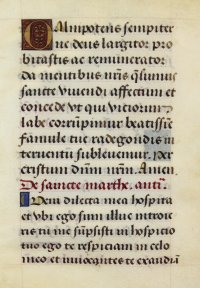 Omnipotens sempiter
ne deus largitor pro
bitatis ac remunerator
da mentibus nr̄is q̄sumus
sancte vivendi affectum et
concede vt qui viciorum
labe corrūpimur beatissīe
famule tue radegondis in
terventu sublevemur. Per
cristum dn̄m nr̄m. Amen.
De sancte marthe. anti.
Item dilecta mea hospita
et vbi ego sum illuc introie
ris tu me su̅psisti in hospicio
tuo ego te respiciam in celo
meo et invocantes te exaudiā